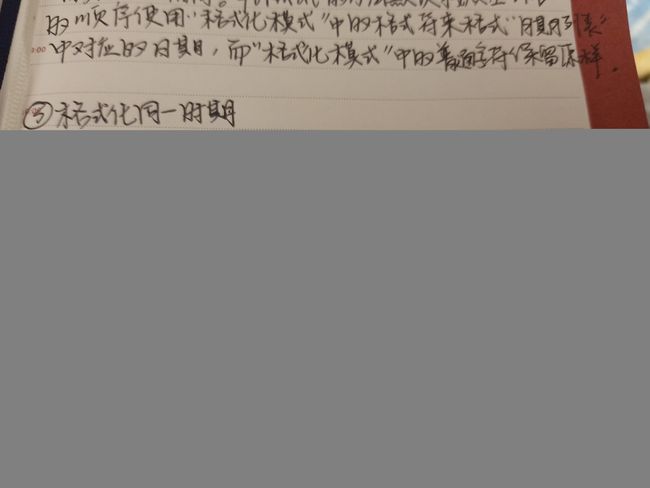 的顺序使用"格式化模式"中的格式符来格式"日期列表"
中对应的日期,而"格式化模式"中的普通字符保留原样.
③格式化同一时期